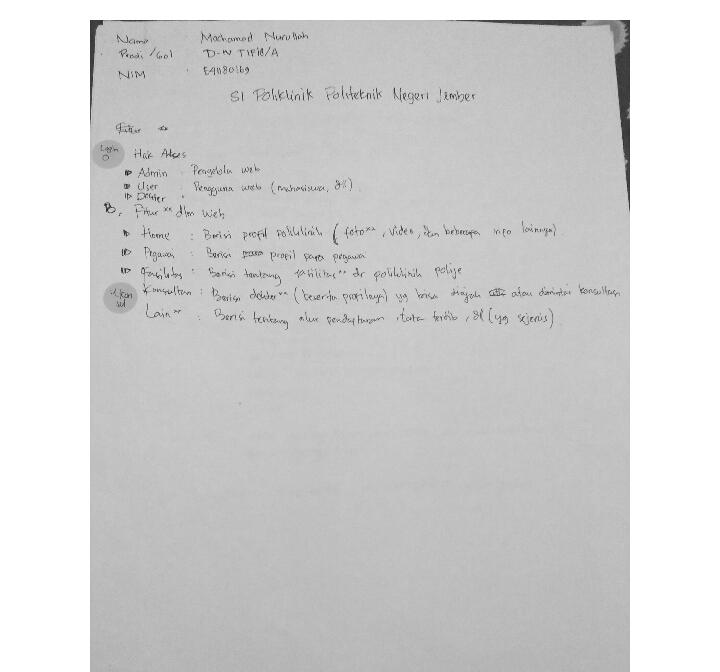 Nama : Mochamad Nurullah
Prodi / Gol D-IV TIF18/A
NIM : E41180169
SI Poliklinik Politeknik Negeri Jember
Fitur **
Login
Hak Akses
Admin : Pengelola web
User : Pengguna web (mahasiswa, dll).
Dokter :
B. Fitur ** dlm web
Home : Berisi profil poliklinik (foto**, video, dan beberapa info lainnya).
Pegawai : Berisi para profil para pegawai
Fasilitas : Berisi tentang fasilitas** dr poliklinik polije
Konsultan : Berisi dokter** (beserta profilnya) yg bisa diajak atau dimintai konsultasi
Lain** : Berisi tentang alur pendaftaran, tata tertib, dll (yg sejenis).